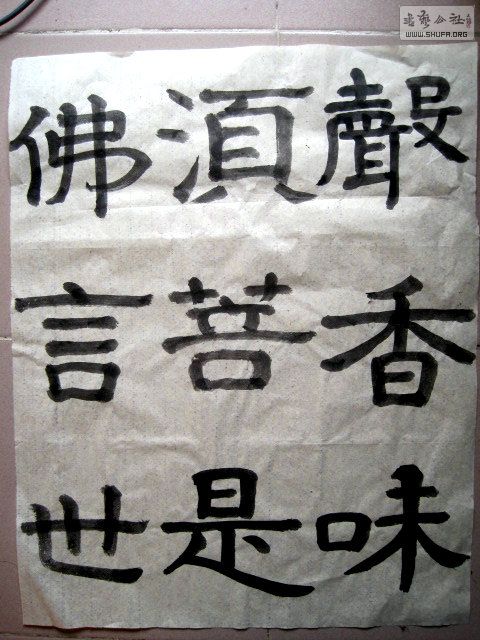 聲香味
湏菩是
佛言世
書藝公社
WWW.SHUFA.ORG